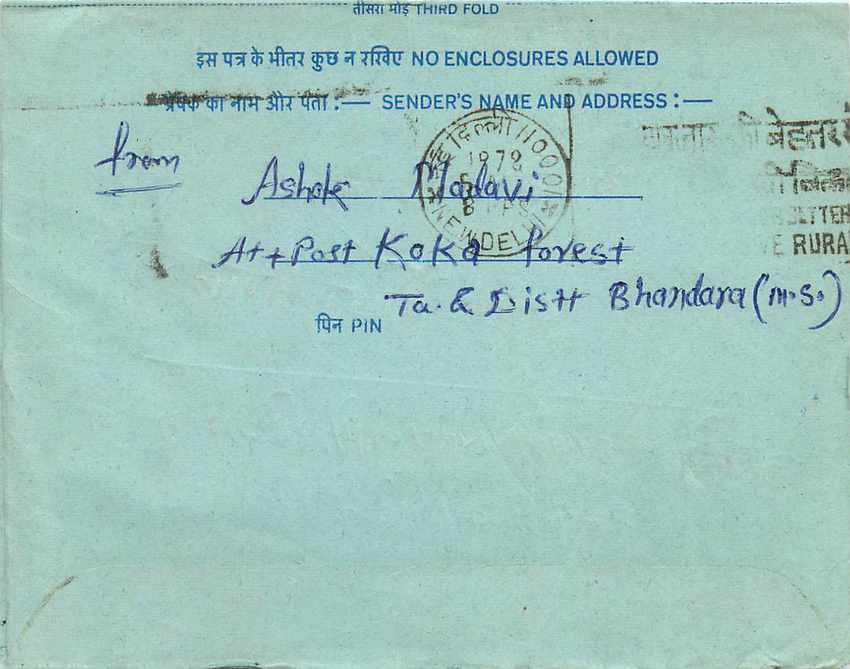 तीसरा मोड़ THIRD FOLD
इस पत्र के भीतर कुछ न रखिए NO ENCLOSURES ALLOWED
प्रेषक का नाम और पता :— SENDER'S NAME AND ADDRESS :—
from
Ashok Madavi
At + Post Koka Forest
Ta. & Distt Bhandara (M.S.)
पिन PIN
नई दिल्ली 110001
1979
NEW DELHI
बेहतर
RURA